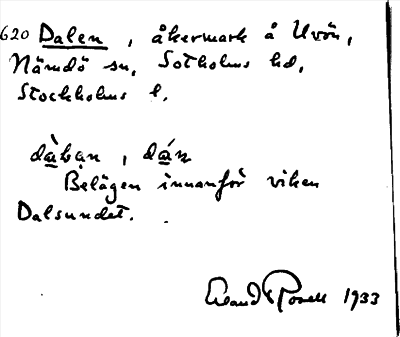 620 Dalen, åkermark å Uvön,
Nämdö sn, Sotholms hd,
Stockholms l.
dàḷạn, dáṇ
Belägen innanför viken
Dalsundet.
1933